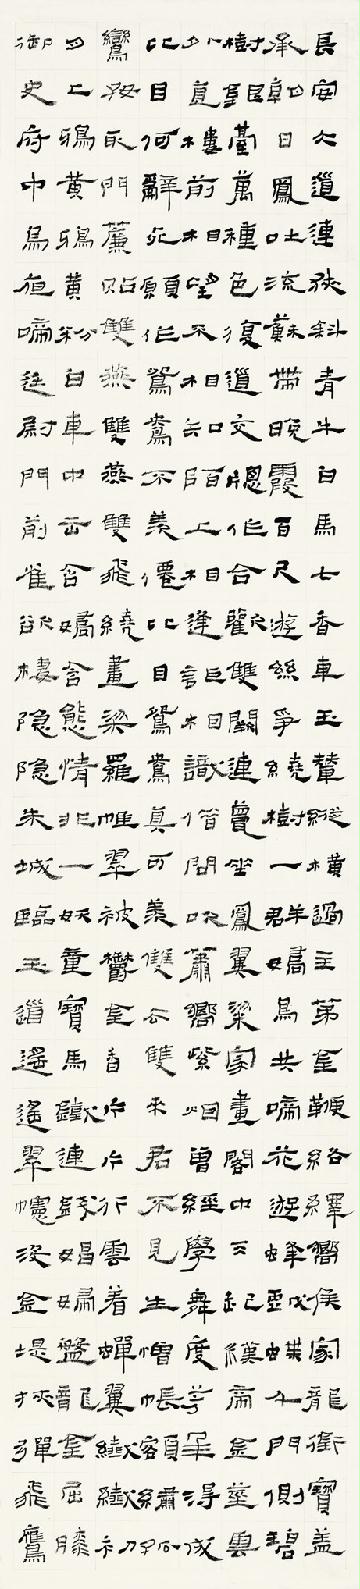 長安大道連狹斜青牛白馬七香車玉輦縱橫過主第金鞭絡繹嚮侯家龍銜寶盖
承朝日鳳吐流蘇帶晚霞百尺遊絲爭繞樹一群嬌鳥共啼花遊蜂戲蝶千門側碧
樹銀臺萬種色復道交牕作合歡雙闕連甍坐鳳翼梁家畫閣中天起漢帝金莖雲
外直樓前相望不相知陌上相逢詎相識借問吹簫嚮紫烟曾經學舞度芳年得成
比目何辭死願作鴛鴦不羨僊比目鴛鴦真可羨雙去雙來君不見生憎帳額繡孤
鸞好取門簾貼雙燕雙燕雙飛繞畫梁羅帷翠被鬱金香片片行雲着蟬翼纖纖初
月上鴉黃鴉黃粉白車中出含嬌含態情非一妖童寶馬鐵連錢娼婦盤龍金屈膝
御史府中烏夜啼廷尉門前雀欲棲隱隱朱城臨玉道遙遙翠幰沒金堤挾彈飛鷹